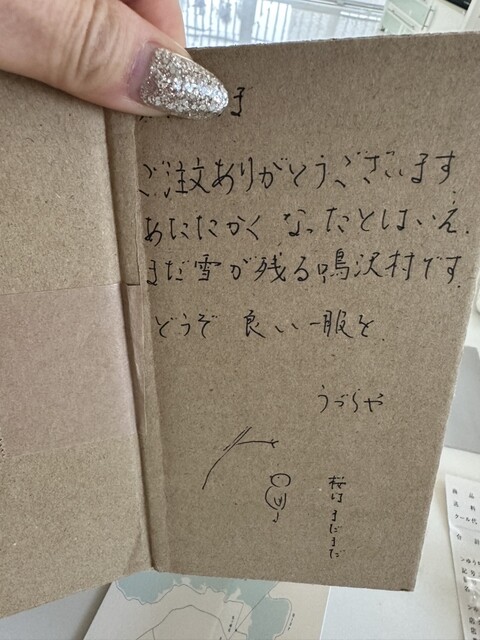 ま
ご注文ありがとうございます。
あたたかく なったとはいえ、
まだ雪が残る鳴沢村です。
どうぞ 良い一服を。
うづらや
桜は まだまだ
商品
送料
クール代
合計